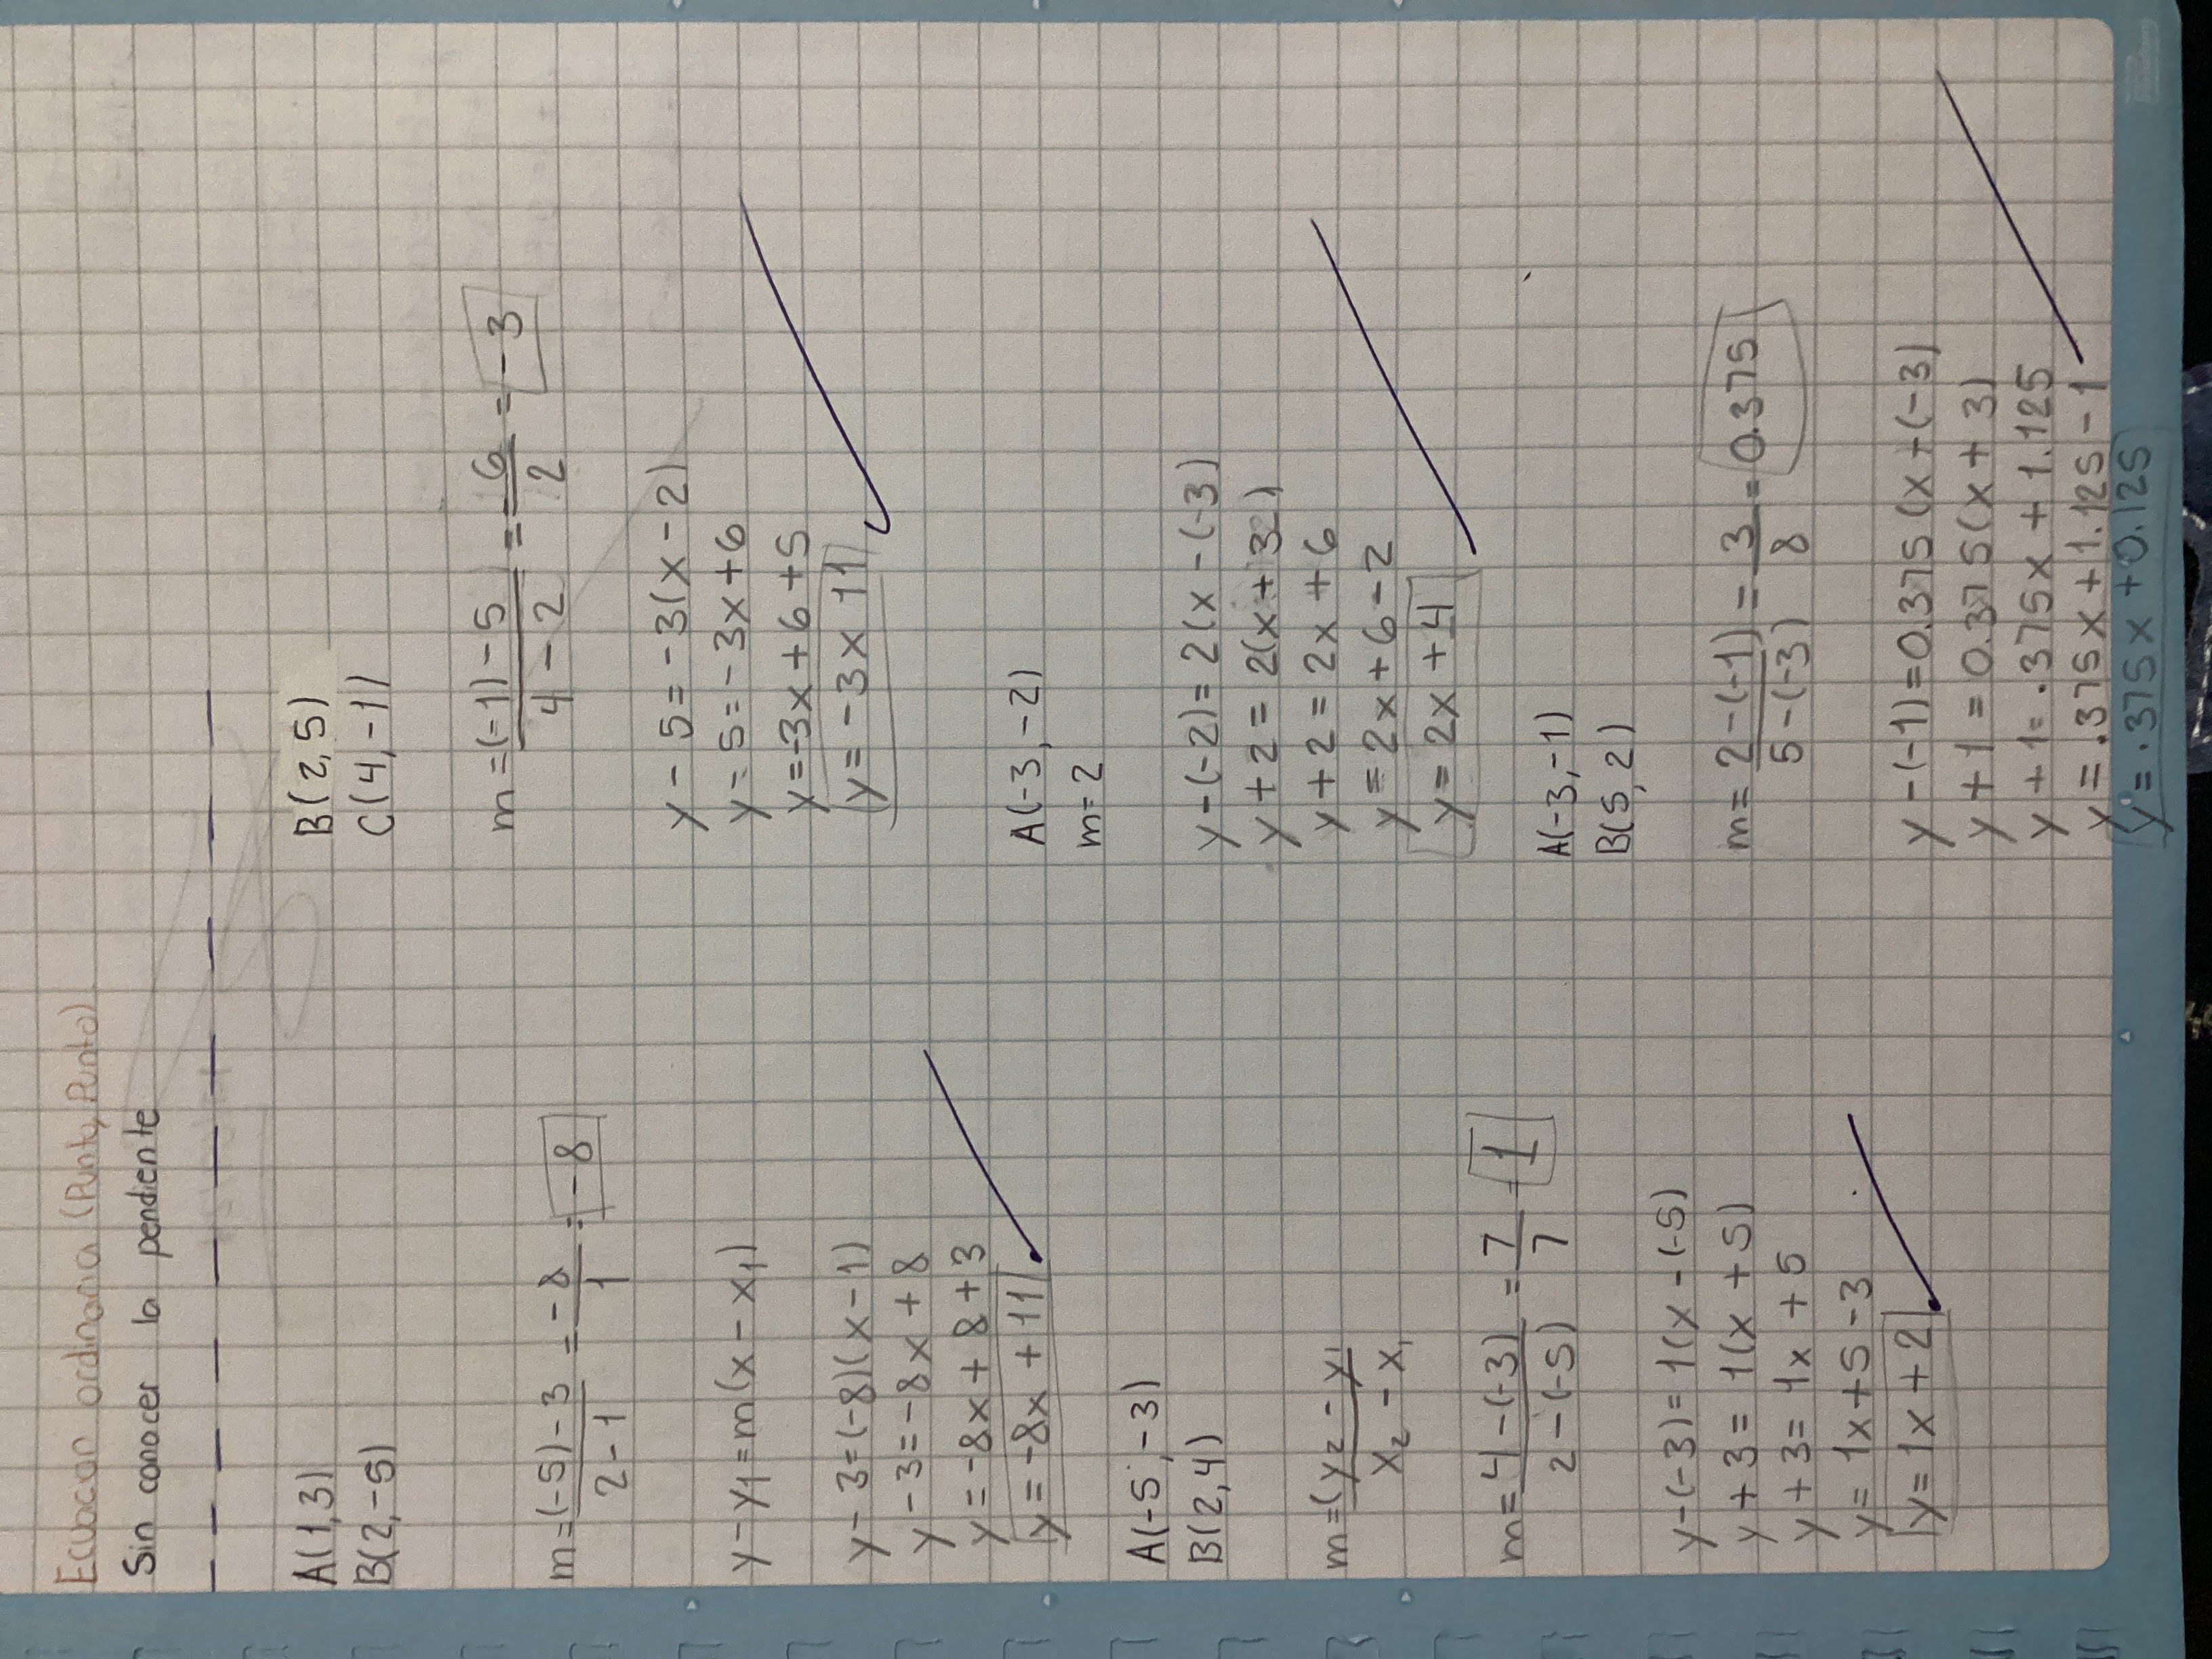 Ecuacion ordinaria (Punto, Punto)
Sin conocer la pendiente
A(1,3)
B(2,-5)
m=(-5)-3/2-1 = -8/1 = -8
y-y1=m(x-x1)
y-3=(-8)(x-1)
y-3=-8x+8
y=-8x+8+3
y=-8x+11
A(-5,-3)
B(2,4)
m=(y2-y1/x2-x1
m=4-(-3)/2-(-5) = 7/7 = 1
y-(-3)=1(x-(-5)
y+3=1(x+5)
y+3=1x+5
y=1x+5-3
y=1x+2
B(2,5)
C(4,-1)
m=(-1)-5/4-2 = -6/2 = -3
y-5=-3(x-2)
y-5=-3x+6
y=-3x+6+5
y=-3x11
A(-3,-2)
m=2
y-(-2)=2(x-(-3)
y+2=2(x+3)
y+2=2x+6
y=2x+6-2
y=2x+4
A(-3,-1)
B(5,2)
m=2-(-1)/5-(-3) = 3/8 = 0.375
y-(-1)=0.375(x+(-3)
y+1=0.375(x+3)
y+1=.375x+1.125
y=.375x+1.125-1
y=.375x+0.125